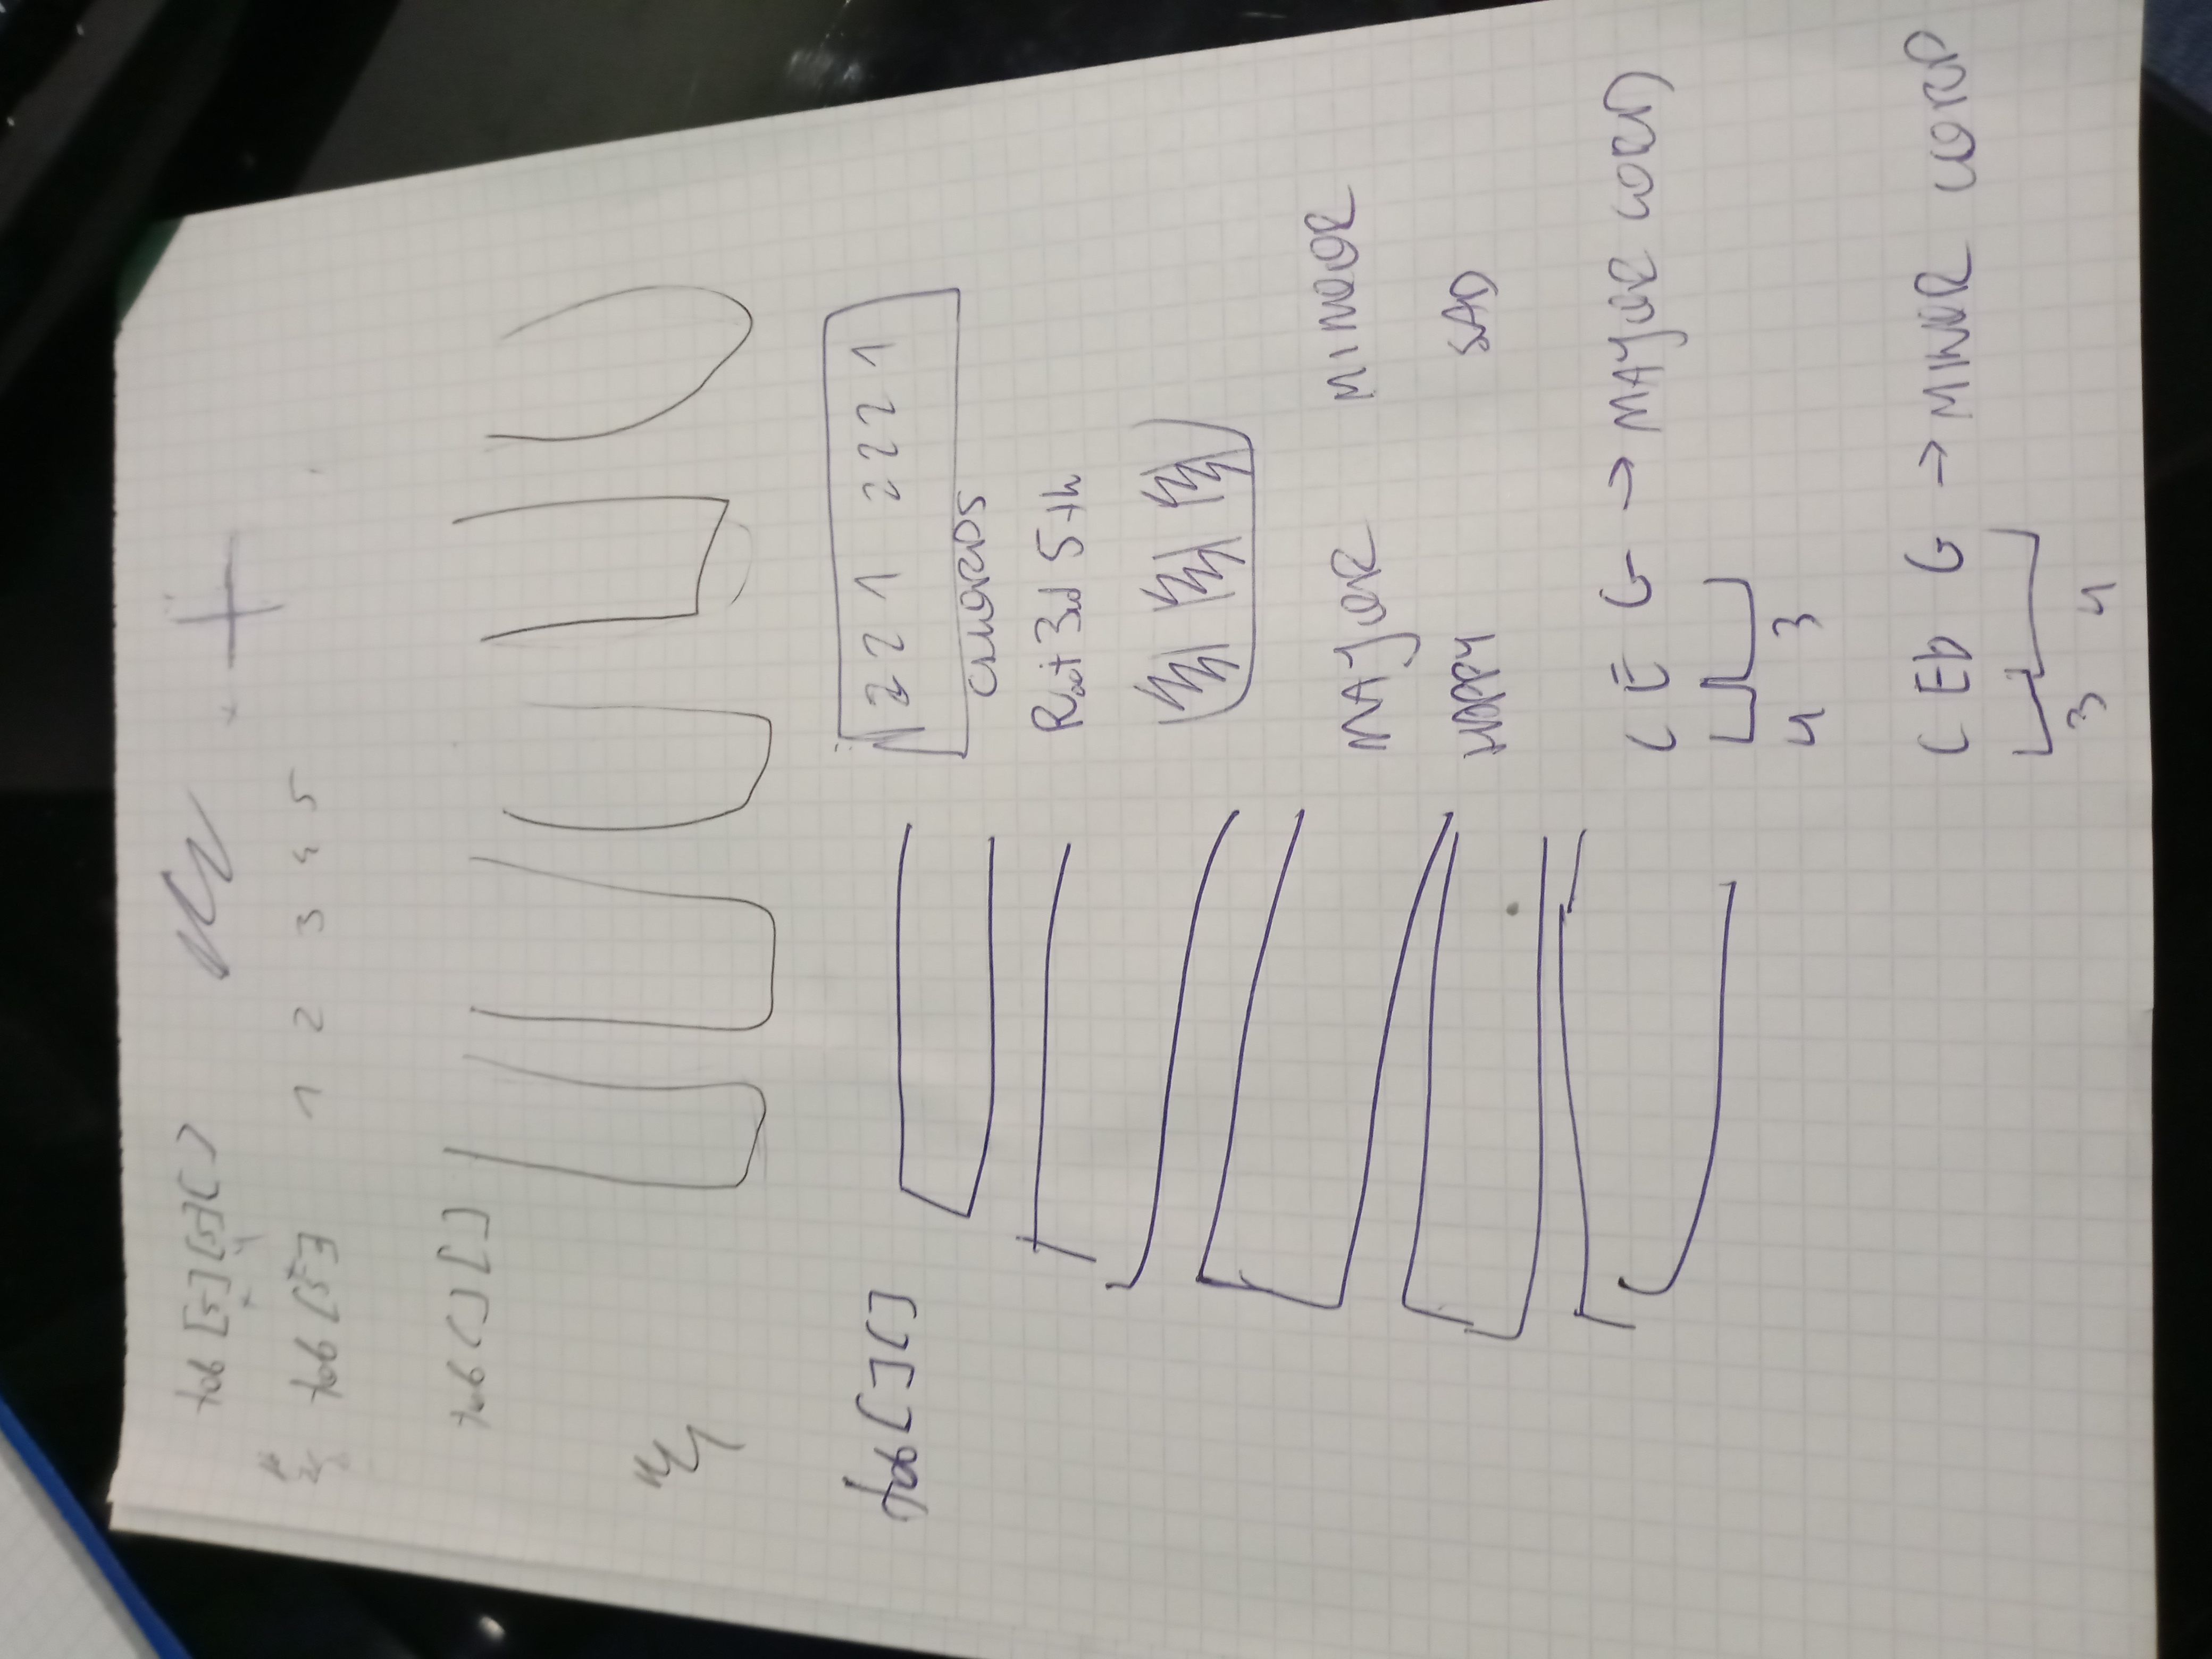 tab [5][5][]
x y
tab [5] 1 2 3 4 5
tab [][]
tab [][]
2 2 1 2 2 2 1
CHORDS
Root 3rd 5th
MAJOR MINOR
HAPPY SAD
C E G → MAJOR CORD
4 3
C Eb G → MINOR CORD
3 4